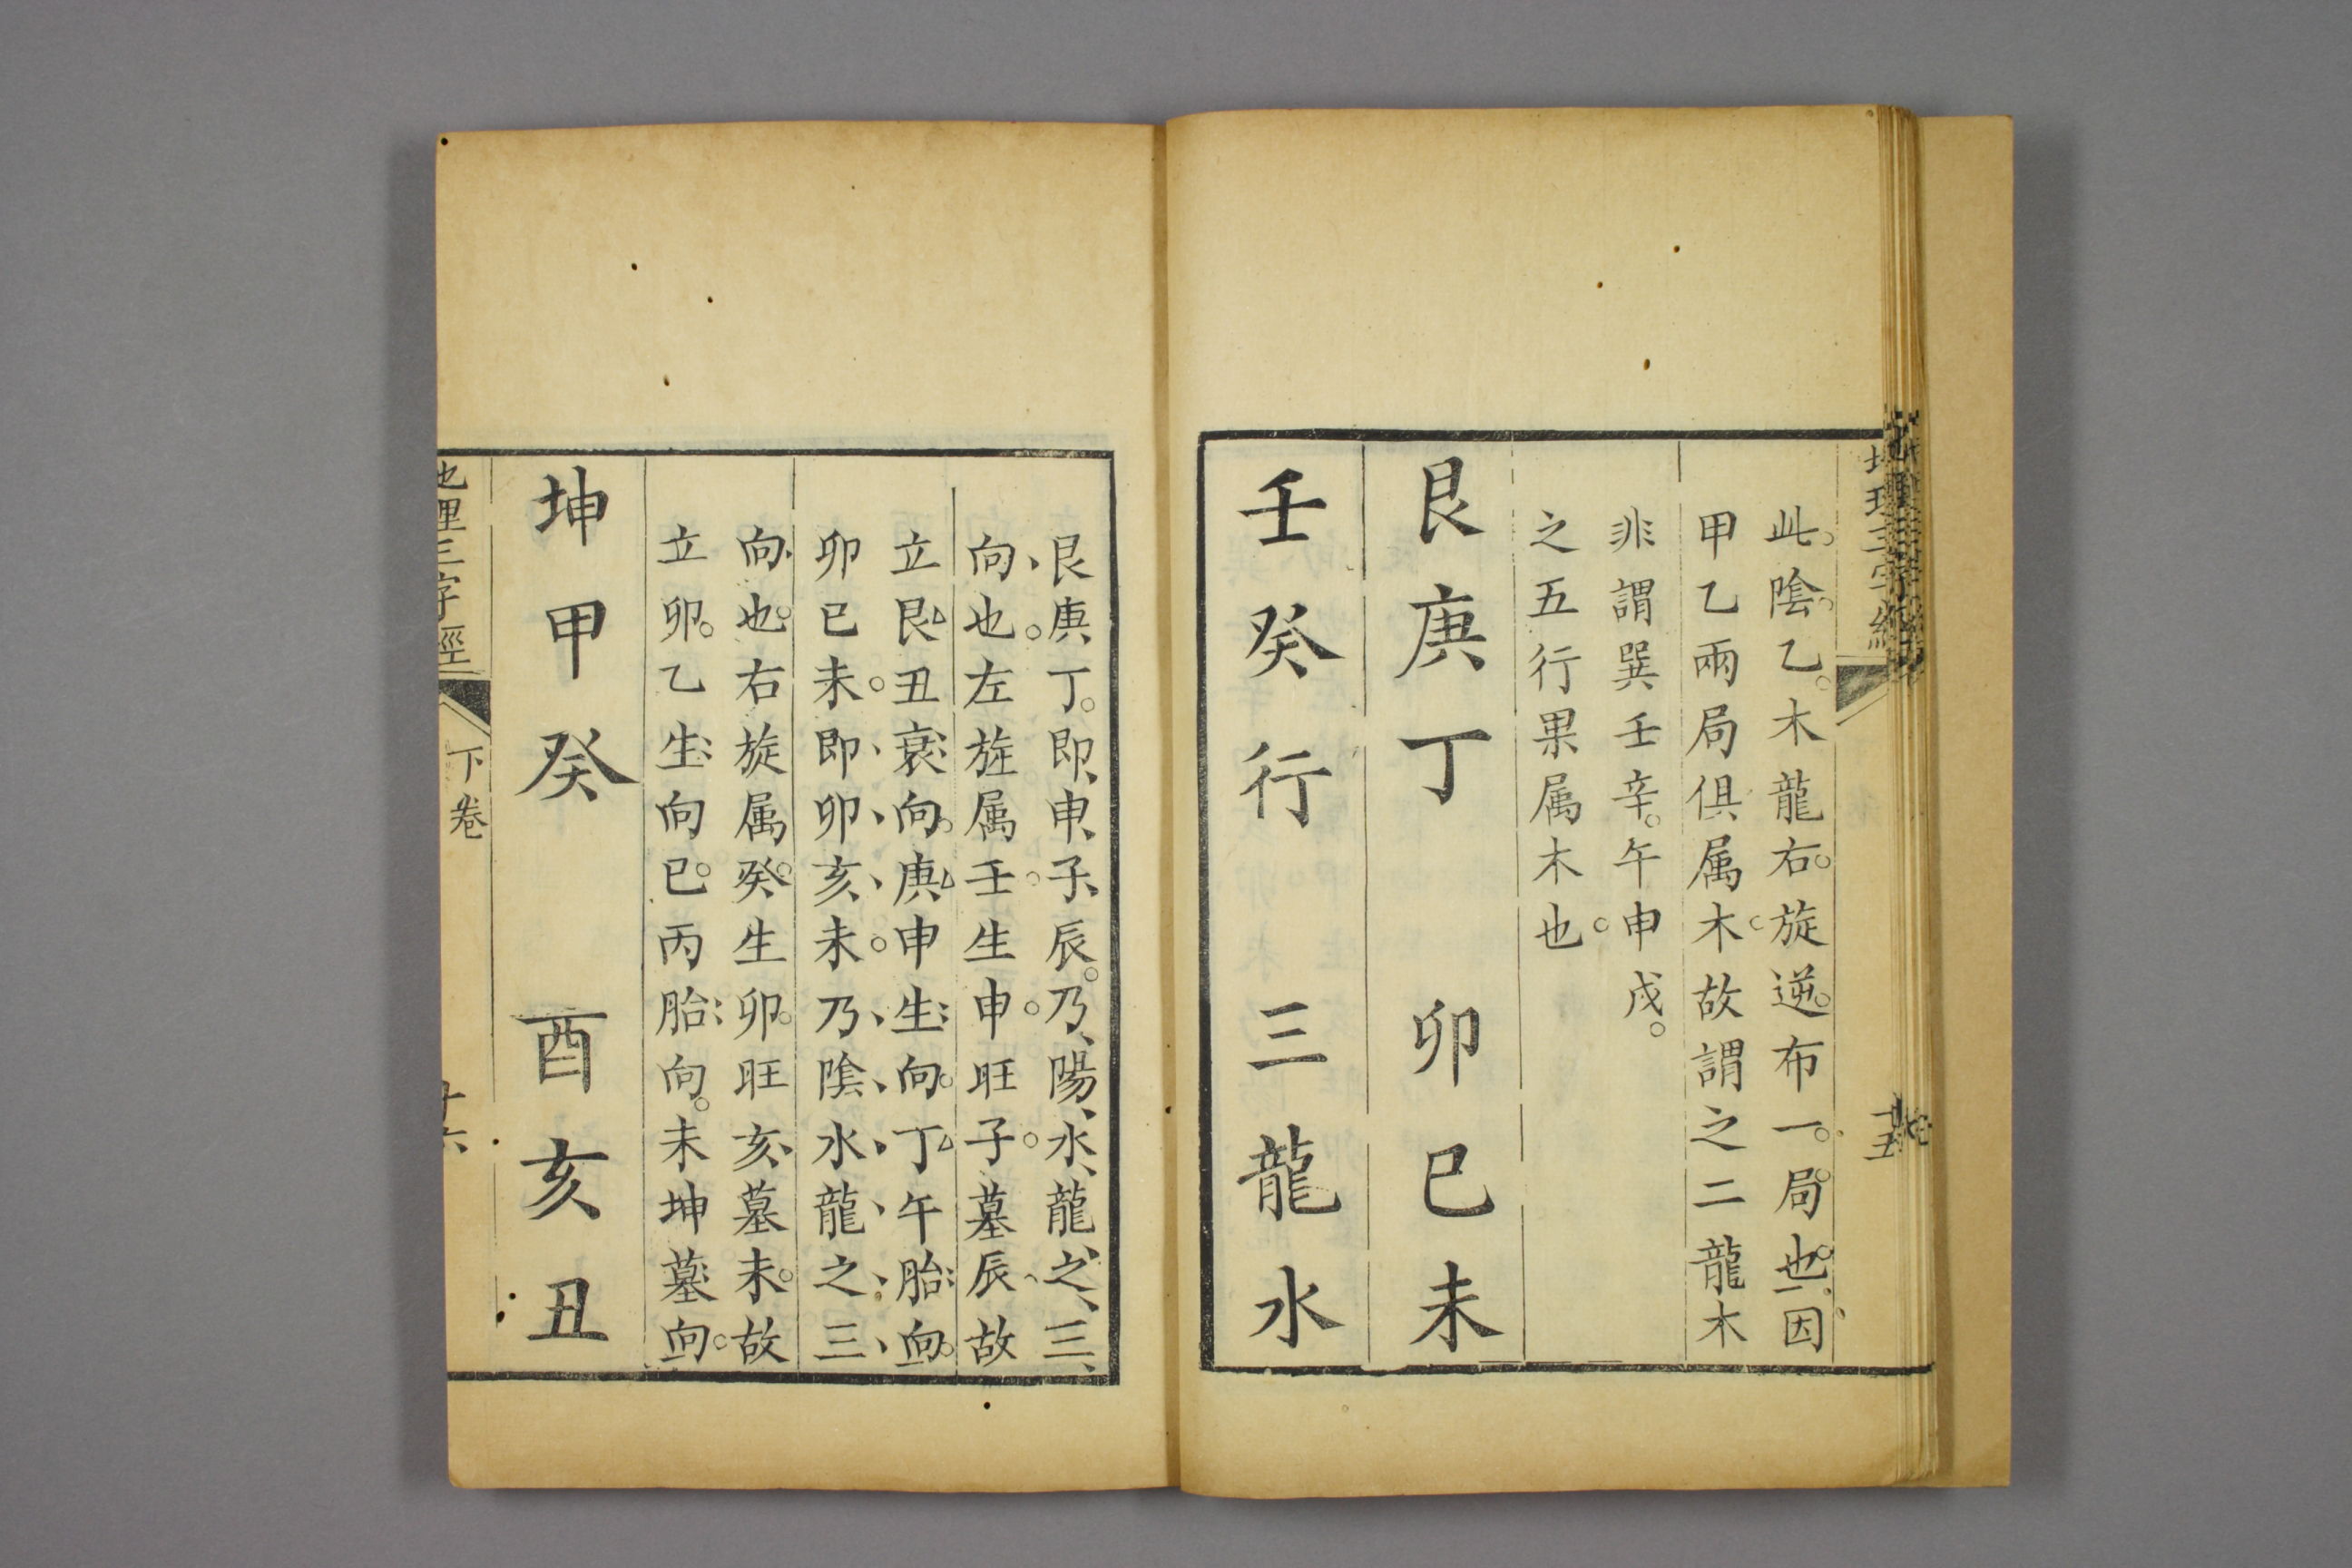 地理三字經
十五
此陰乙木龍右旋逆布一局也因
甲乙兩局俱属木故謂之二龍木
非謂巽壬辛午申戌
之五行果属木也
艮庚丁 卯巳未
壬癸行 三龍水
艮庚丁即申子辰乃陽水龍之三
向也左旋属壬生申旺子墓辰故
立艮丑衰向庚申生向丁午胎向
卯巳未即卯亥未乃陰水龍之三
向也右旋属癸生卯旺亥墓未故
立卯乙生向巳丙胎向未坤墓向
坤甲癸 酉亥丑
地理三字經
下卷
十六